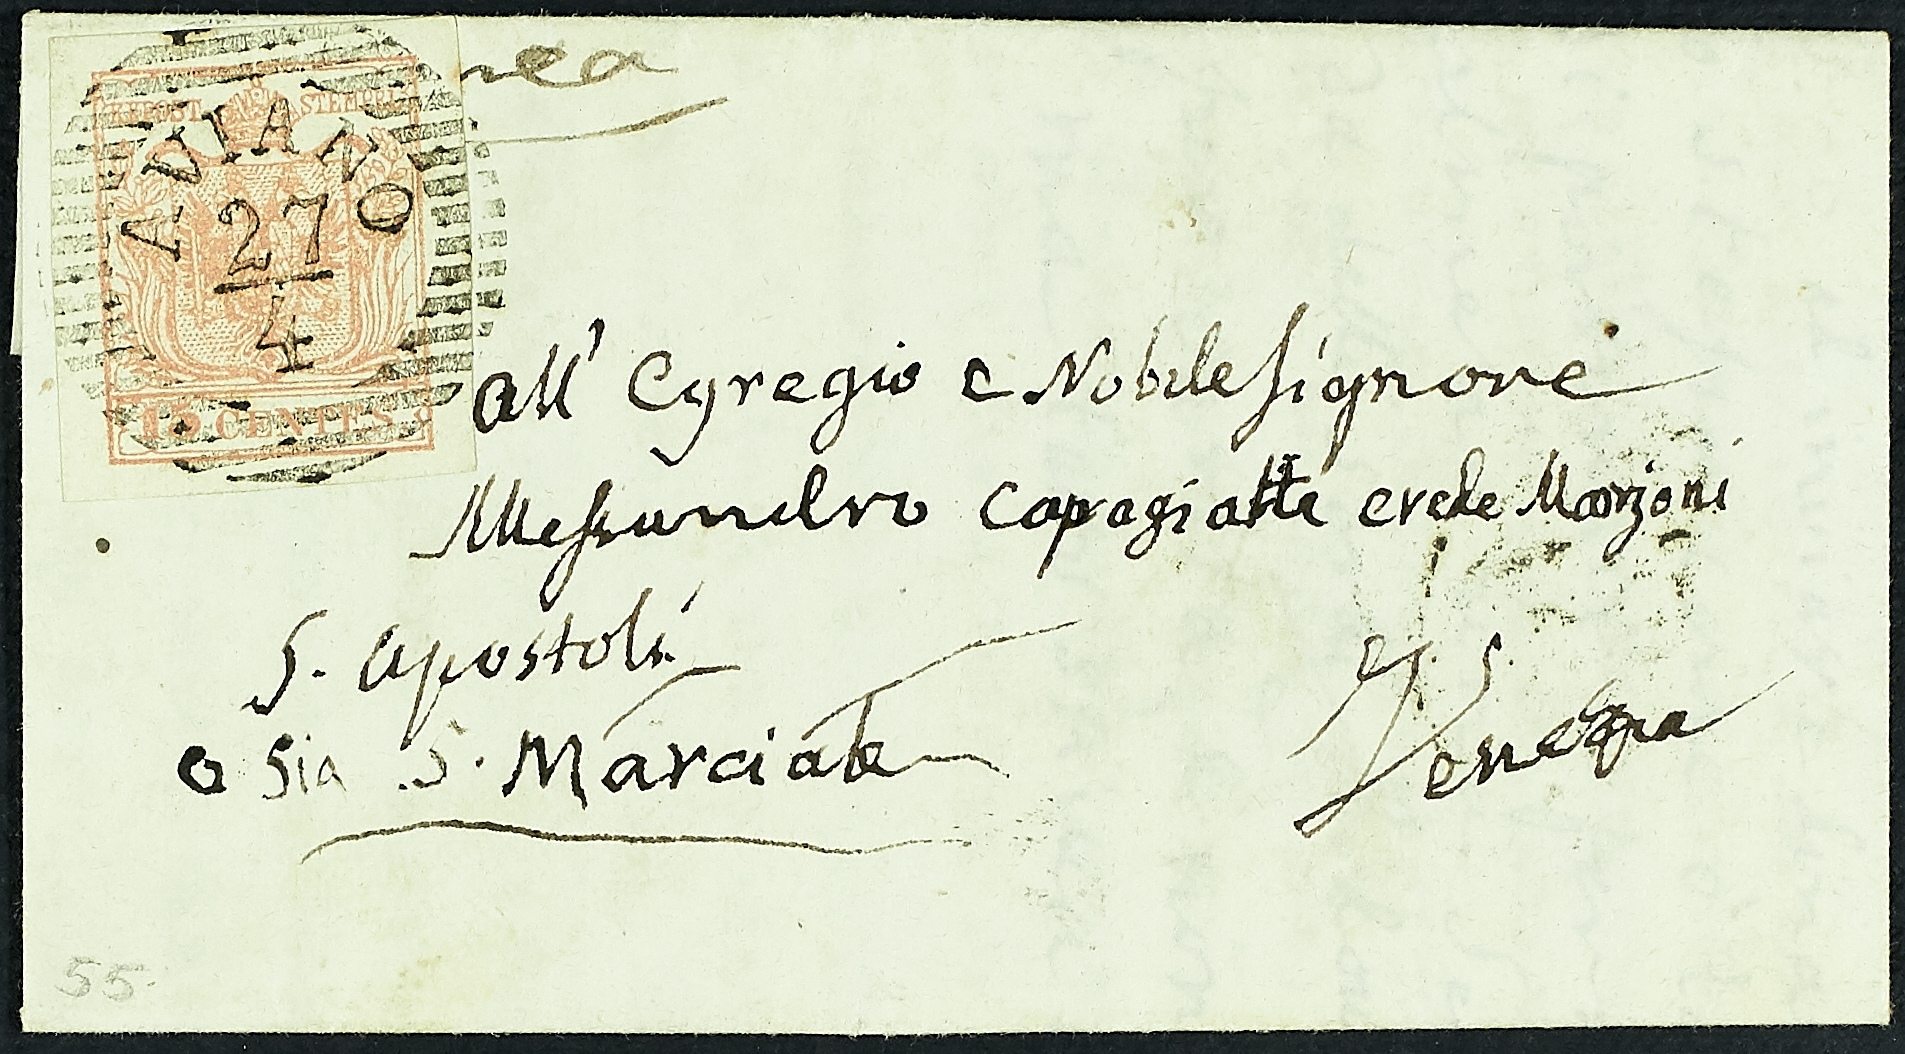 KKPOST STEMPEL
AVIANO
27
4
15 CENTES
All' Egregio e Nobile Signore
Alessandro Capragiatta erede Manzoni
S. Apostoli
o sia S. Marciale
Venezia
55